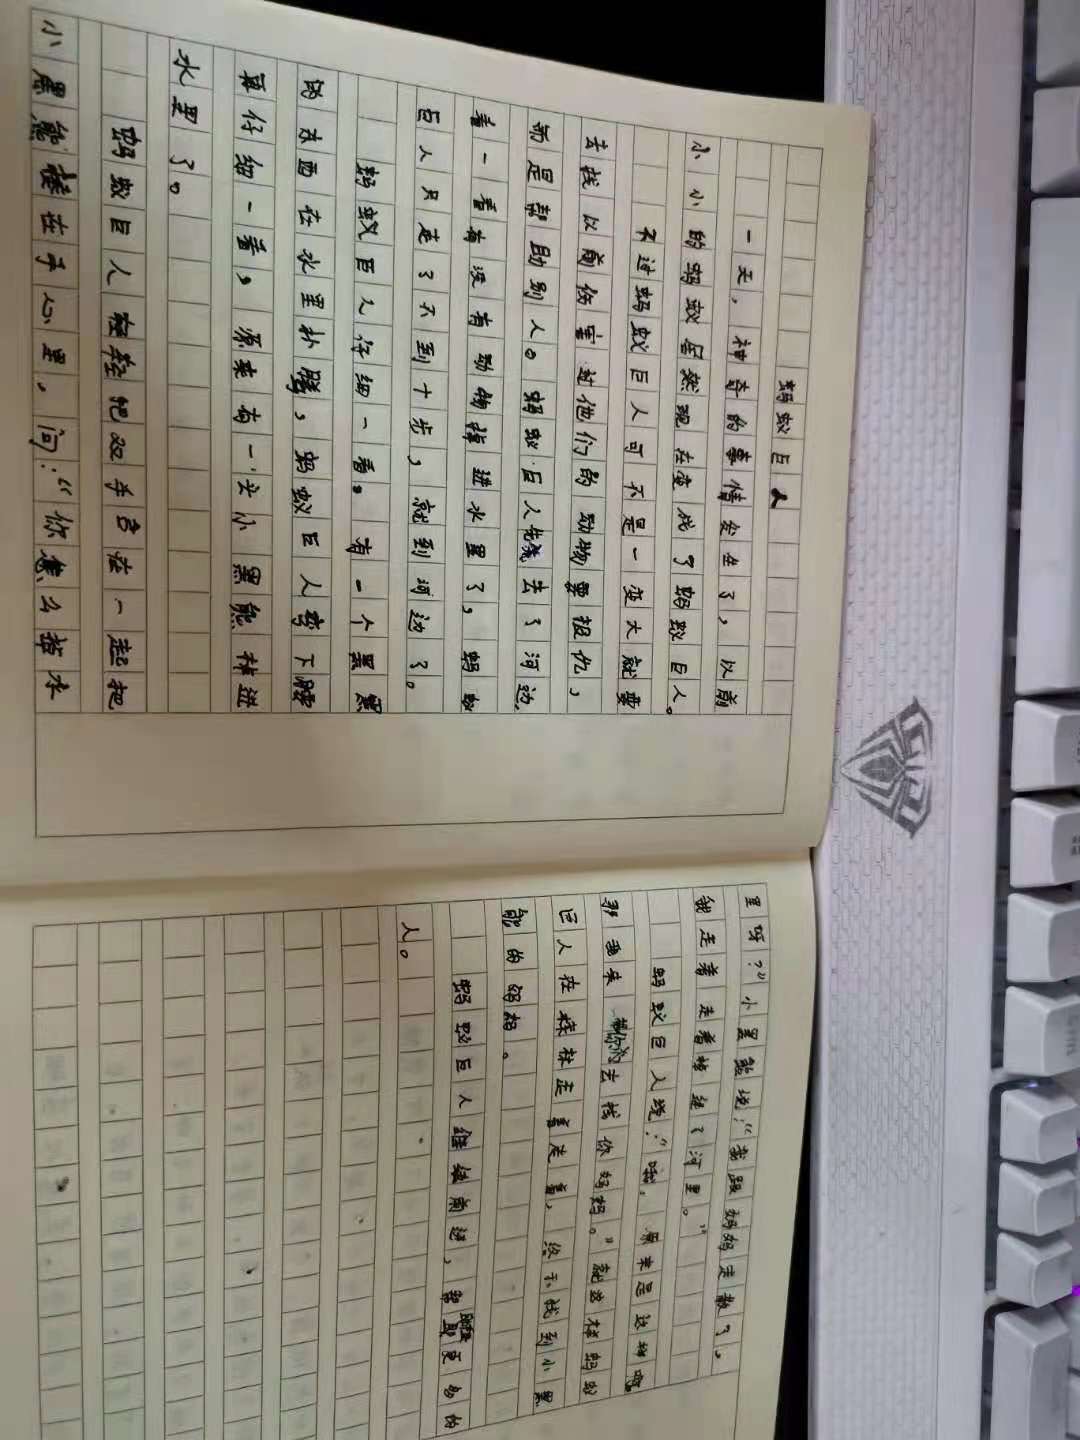 蚂蚁巨人
一天,神奇的事情发生了,以前
小小的蚂蚁居然现在变成了蚂蚁巨人。
不过蚂蚁巨人可不是一变大就要
去找以前伤害过他们的动物要报仇,
而是帮助别人。蚂蚁巨人先去了河边,
看一看有没有动物掉进水里了,蚂蚁
巨人只走了不到十步,就到河边了。
蚂蚁巨人仔细一看。有一个黑黑
的东西在水里扑腾,蚂蚁巨人弯下腰
再仔细一看,原来有一头小黑熊掉进
水里了。
蚂蚁巨人轻轻把双手合在一起把
小黑熊接在手心里。问:“你怎么掉水
里呀?”小黑熊说:“我跟妈妈走散了,
我走着走着掉进了河里。”
蚂蚁巨人说:“哦,原来是这样啊
那我来带你去找你妈妈。”就这样蚂蚁
巨人在森林走着走着,终于找到小黑
熊的妈妈。
蚂蚁巨人继续前进,帮助更多的
人。